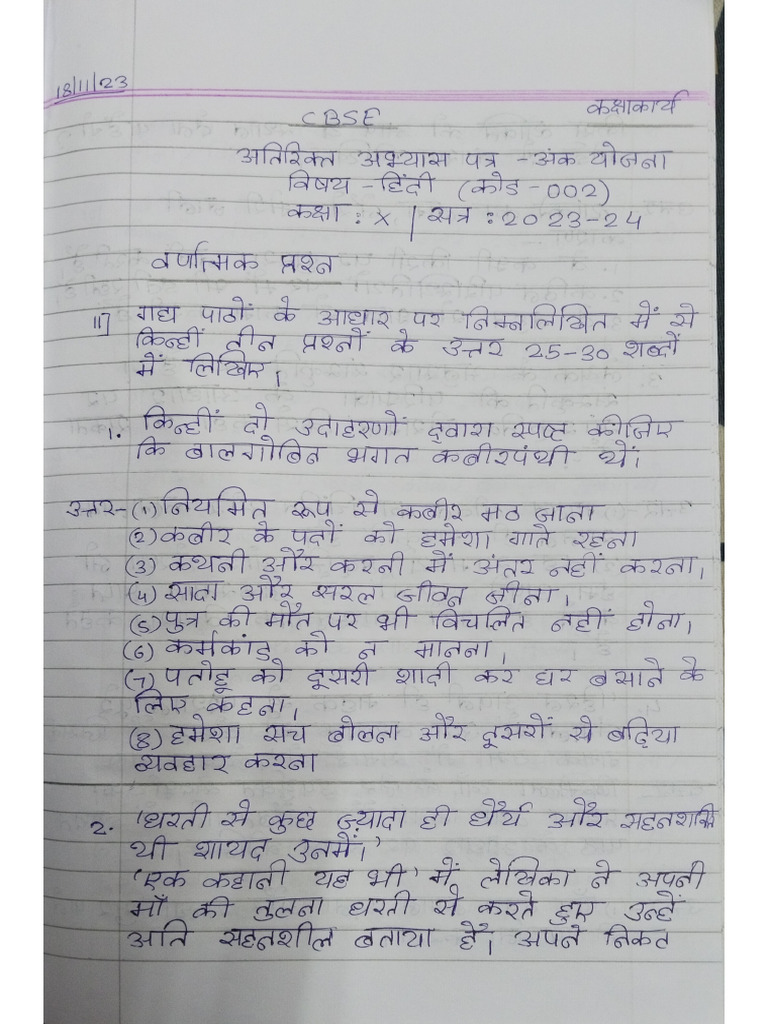 18/11/23
कक्षाकार्य
CBSE
अतिरिक्त अभ्यास पत्र - अंक योजना
विषय - हिंदी (कोड -002)
कक्षा : X | सत्र : 2023-24
वर्णात्मक प्रश्न
11] गद्य पाठों के आधार पर निम्नलिखित में से
किन्हीं तीन प्रश्नों के उत्तर 25-30 शब्दों
में लिखिए।
1. किन्हीं दो उदाहरणों द्वारा स्पष्ट कीजिए
कि बालगोबिन भगत कबीरपंथी थें।
उत्तर- (1) नियमित रूप से कबीर मठ जाना
(2) कबीर के पदों को हमेशा गाते रहना
(3) कथनी और करनी में अंतर नहीं करना।
(4) सादा और सरल जीवन जीना।
(5) पुत्र की मौत पर भी विचलित नहीं होना।
(6) कर्मकांड को न मानना।
(7) पतोहू को दूसरी शादी कर घर बसाने के
लिए कहना।
(8) हमेशा सच बोलना और दूसरों से बढ़िया
व्यवहार करना
2. 'धरती से कुछ ज़्यादा ही धैर्य और सहनशक्ति
थी शायद उनमें।'
'एक कहानी यह भी' में लेखिका ने अपनी
माँ की तुलना धरती से करते हुए उन्हें
अति सहनशील बताया है। अपने निकट